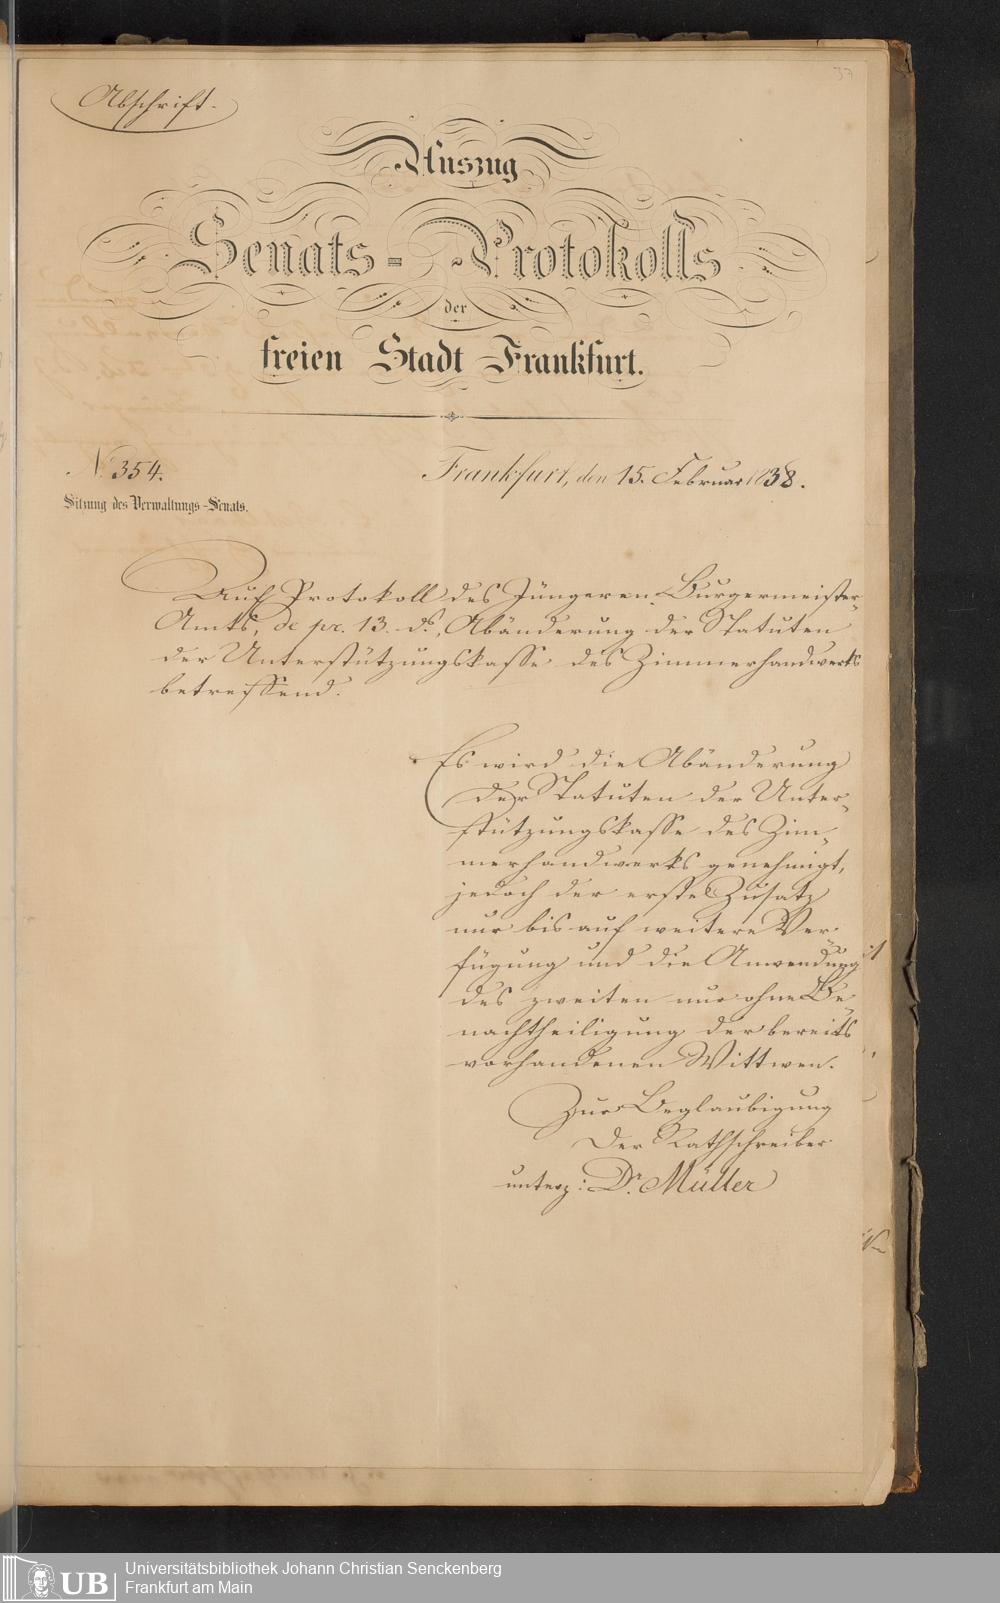 37
Abschrift.
Auszug
Senats-Protokolls
der
freien Stadt Frankfurt.
N. 354.
Frankfurt, den 15. Februar 1838.
Sitzung des Verwaltungs-Senats.
Auf Protokoll des Jüngeren Burgermeister-
Amts, de pr. 13. ds., Abänderung der Statuten
der Unterstützungskasse des Zimmerhandwerks
betreffend.
Es wird die Abänderung
der Statuten der Unter-
stützungskasse des Zim-
merhandwerks genehmigt,
jedoch der erste Zusatz
nur bis auf weitere Ver-
fügung und die Anwendung
des zweiten nur ohne Be-
nachtheiligung der bereits
vorhandenen Wittwen.
Zur Beglaubigung
Der Rathschreiber
unterz: Dr. Müller
UB
Universitätsbibliothek Johann Christian Senckenberg
Frankfurt am Main